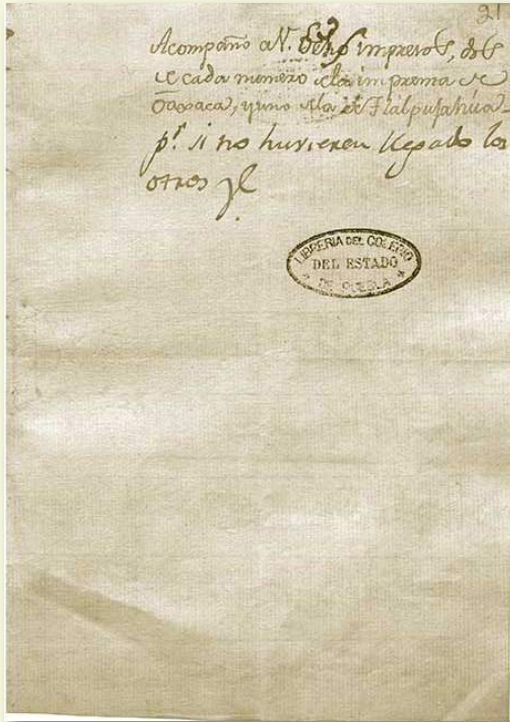 21
Acompaño a V. Ocho impresos, dos
de cada numero de la imprenta de
Oaxaca, y uno de la de Tlalpujahua
pr. si no huvieren llegado los
otros
LIBRERIA DEL COLEGIO
DEL ESTADO
DE PUEBLA